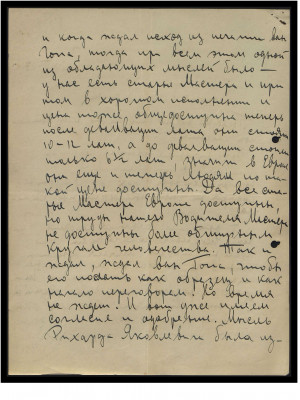 и когда ждал исход из печати Ван
Гога, тогда при всем этом одной
из обладающих мыслей было —
у нас есть старые Мастера и при
том в хорошем исполнении и
цена тоже общедоступна теперь
после девальвации лата они стоят
10–12 лат, а до девальвации стоили
только 6½ лат, значит в Европе
они еще и теперь людям по та-
кой цене доступны. Да все ста-
рые Мастера Европы доступны,
но труды нашего Водителя Мастера
не доступны более обширным
кругам человечества. Так и
ждал, ждал Ван Гога, чтобы
его послать как образец и как
начало переговоров. Но время
не ждет. И вот уже имеем
согласие и одобрение. Мысль
Рихарда Яковлевича была из-